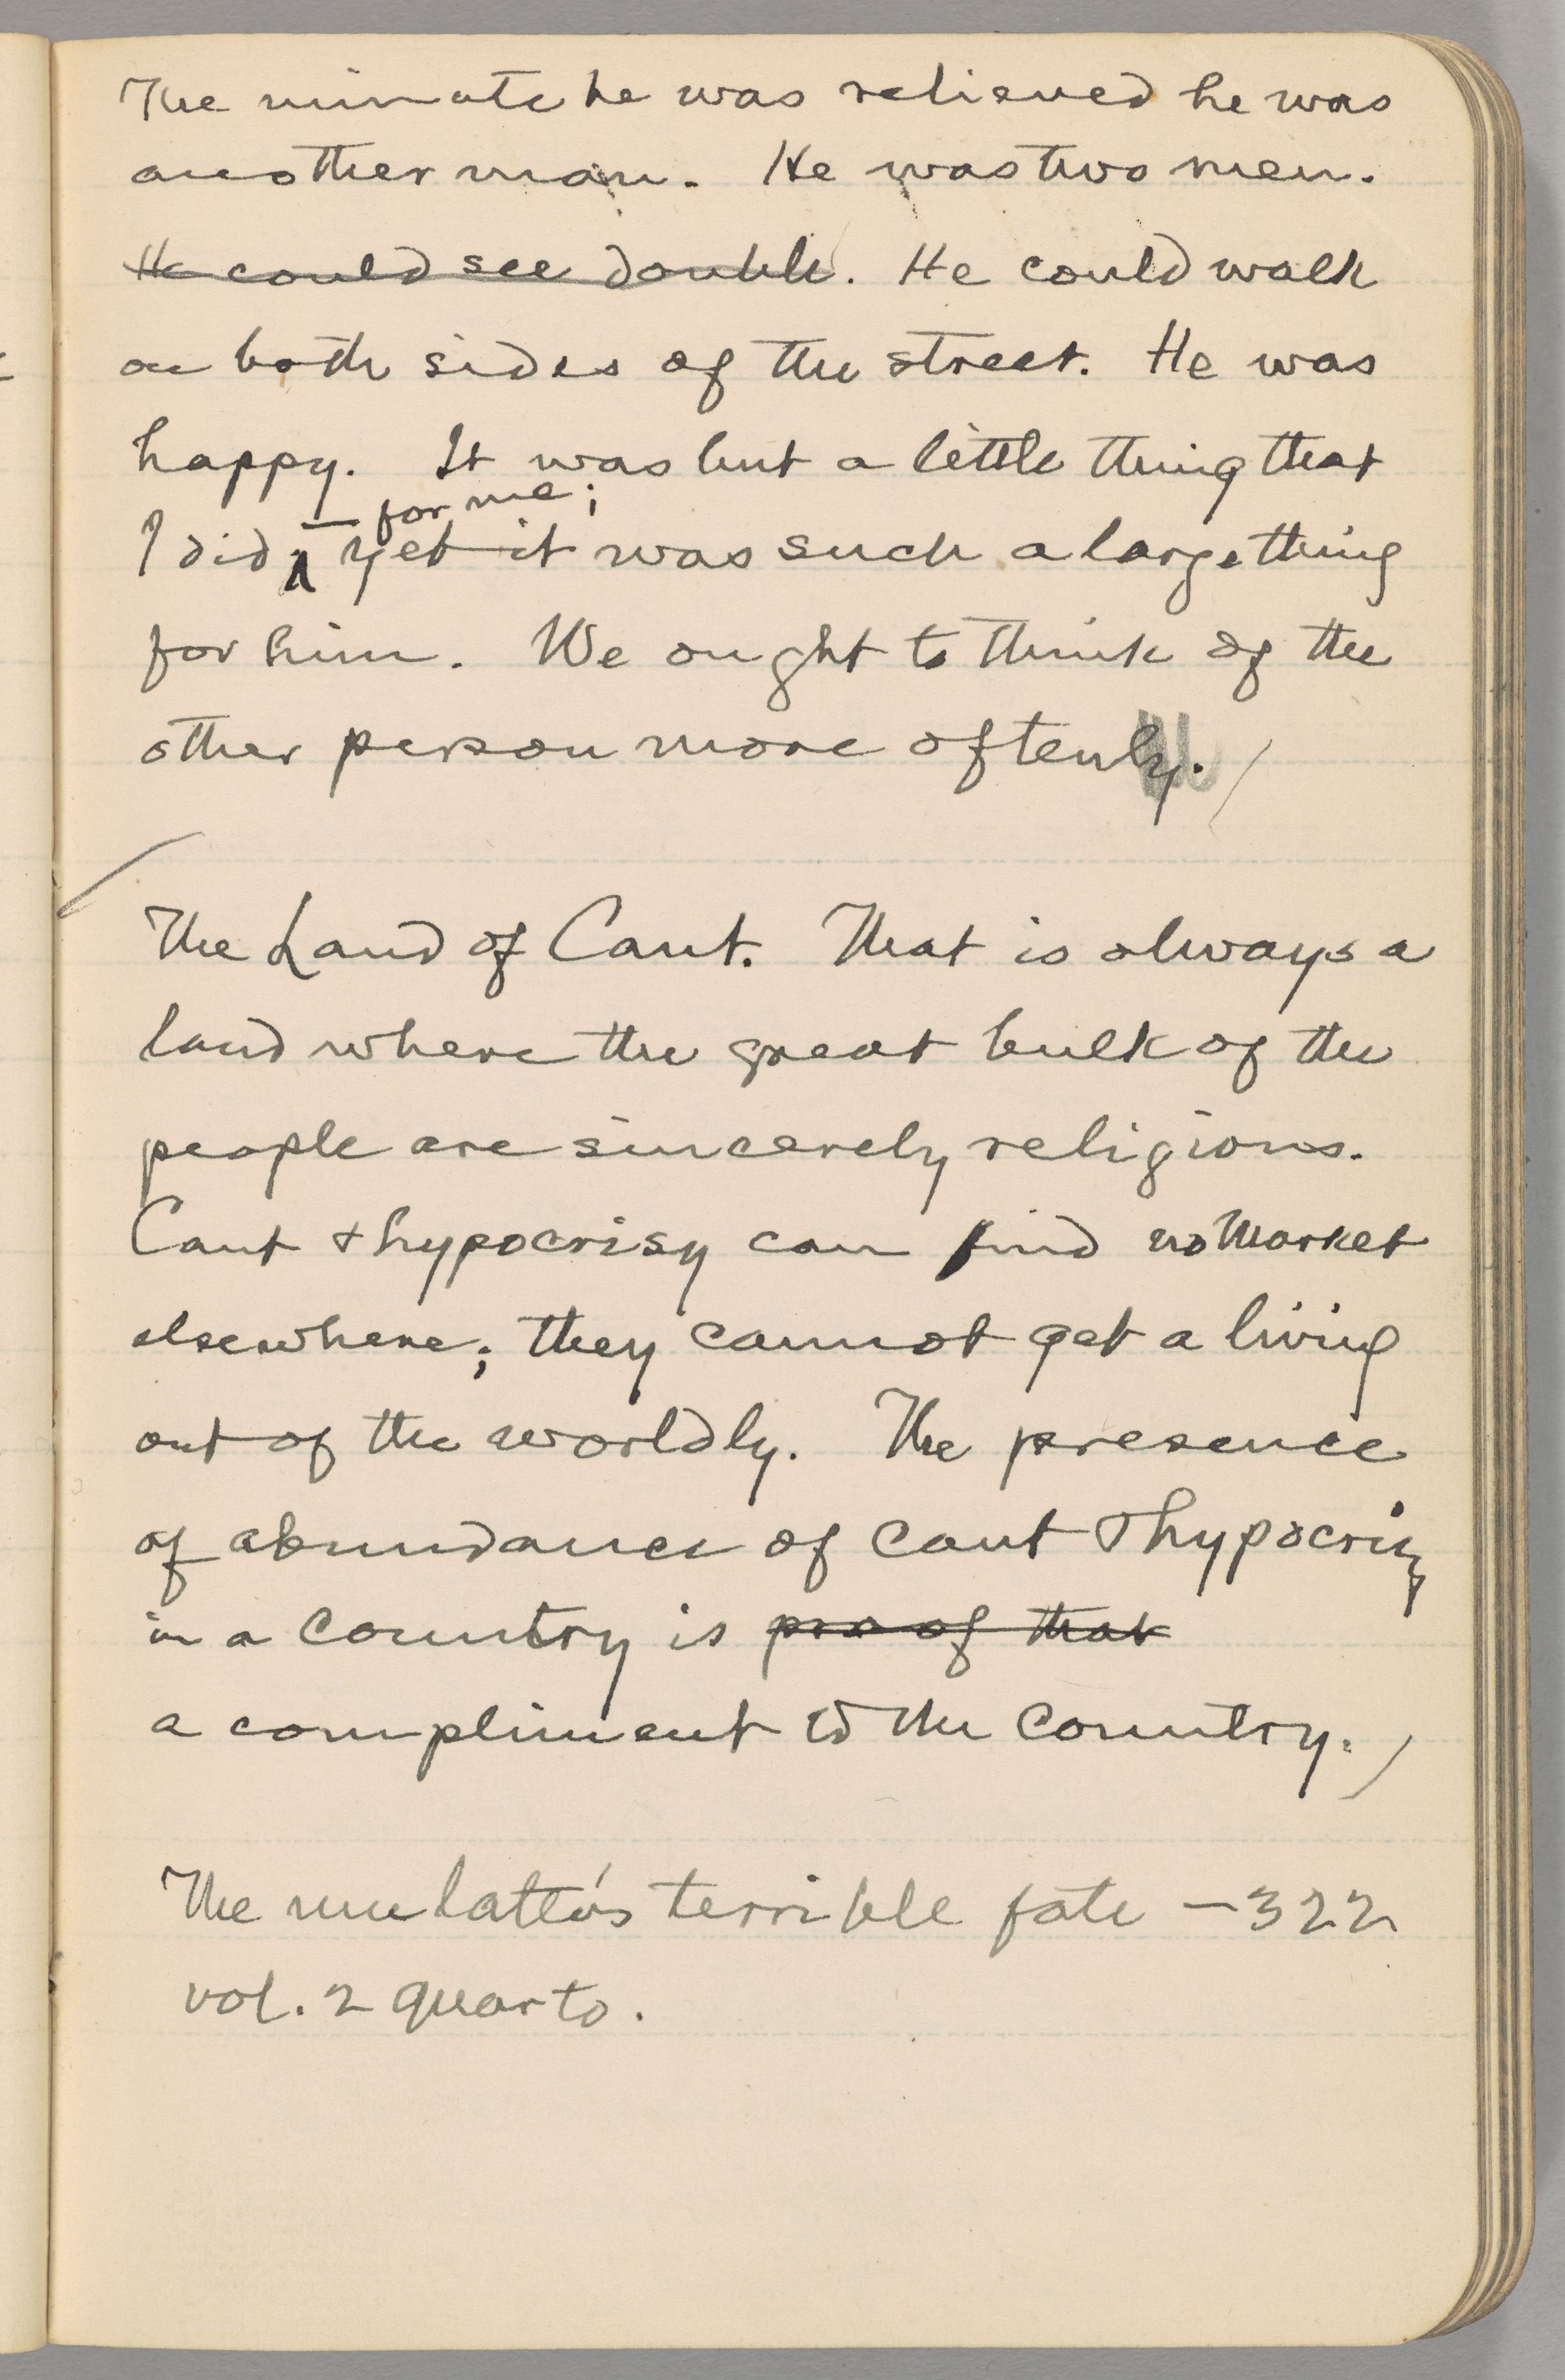 The minute he was relieved he was
another man. He was two men.
He could see double. He could walk
on both sides of the street. He was
happy. It was but a little thing that
— for me;
I did yet it was such a large thing
for him. We ought to think of the
other person more oftenly.
The Land of Cant. That is always a
land where the great bulk of the
people are sincerely religious.
Cant & hypocrisy can find no market
elsewhere; they cannot get a living
out of the worldly. The presence
of abundance of cant & hypocrisy
in a country is proof that
a compliment to the country.
The mulatto's terrible fate — 322
vol. 2 quarto.